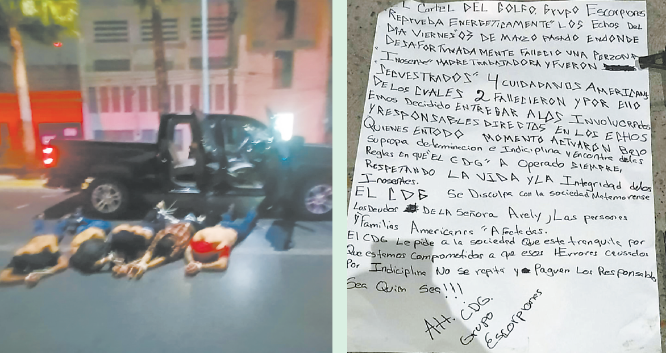 EL CARTEL DEL GOLFO, GRUPO Escorpiones
REPRUEBA ENERGETICAMENTE LOS Echos DEL
DIA VIERNES 03 DE MARZO PASADO ENDONDE
DESAFORTUNADAMENTE FALLECIO UNA PERZONA
INOSENTE MADRE TRABAJADORA Y FUERON
SECUESTRADOS 4 CUIDADANOS AMERICAN
DE LOS CUALES 2 FALLECIERON Y POR ELLO
Emos Decidido ENTREGAR A LOS INVOLUCRADOS
Y RESPONSABLES DIRECTOS EN LOS ECHOS
QUIENES EN TODO MOMENTO ACTUARON BAJO
Su propia determinacion e Indiciplina y encontra de las
Reglas EN QUE "EL CDG" A Operado SIEMPRE,
RESPETANDO LA VIDA Y LA Integridad de los
Inosentes.
EL CDG Se Disculpa con la sociedad Matamorense
Los Deudos DE LA Señora Arely y Las personas
y Familias Americanas "Afectadas.
El CDG Le pide a la sociedad que este tranquila por
Que estamos comprometidos a que esos Errores causados
Por Indiciplina No se repita y Paguen Los Responsables
Sea Quim Sea!!!
Att. CDG.
Grupo
Escorpiones